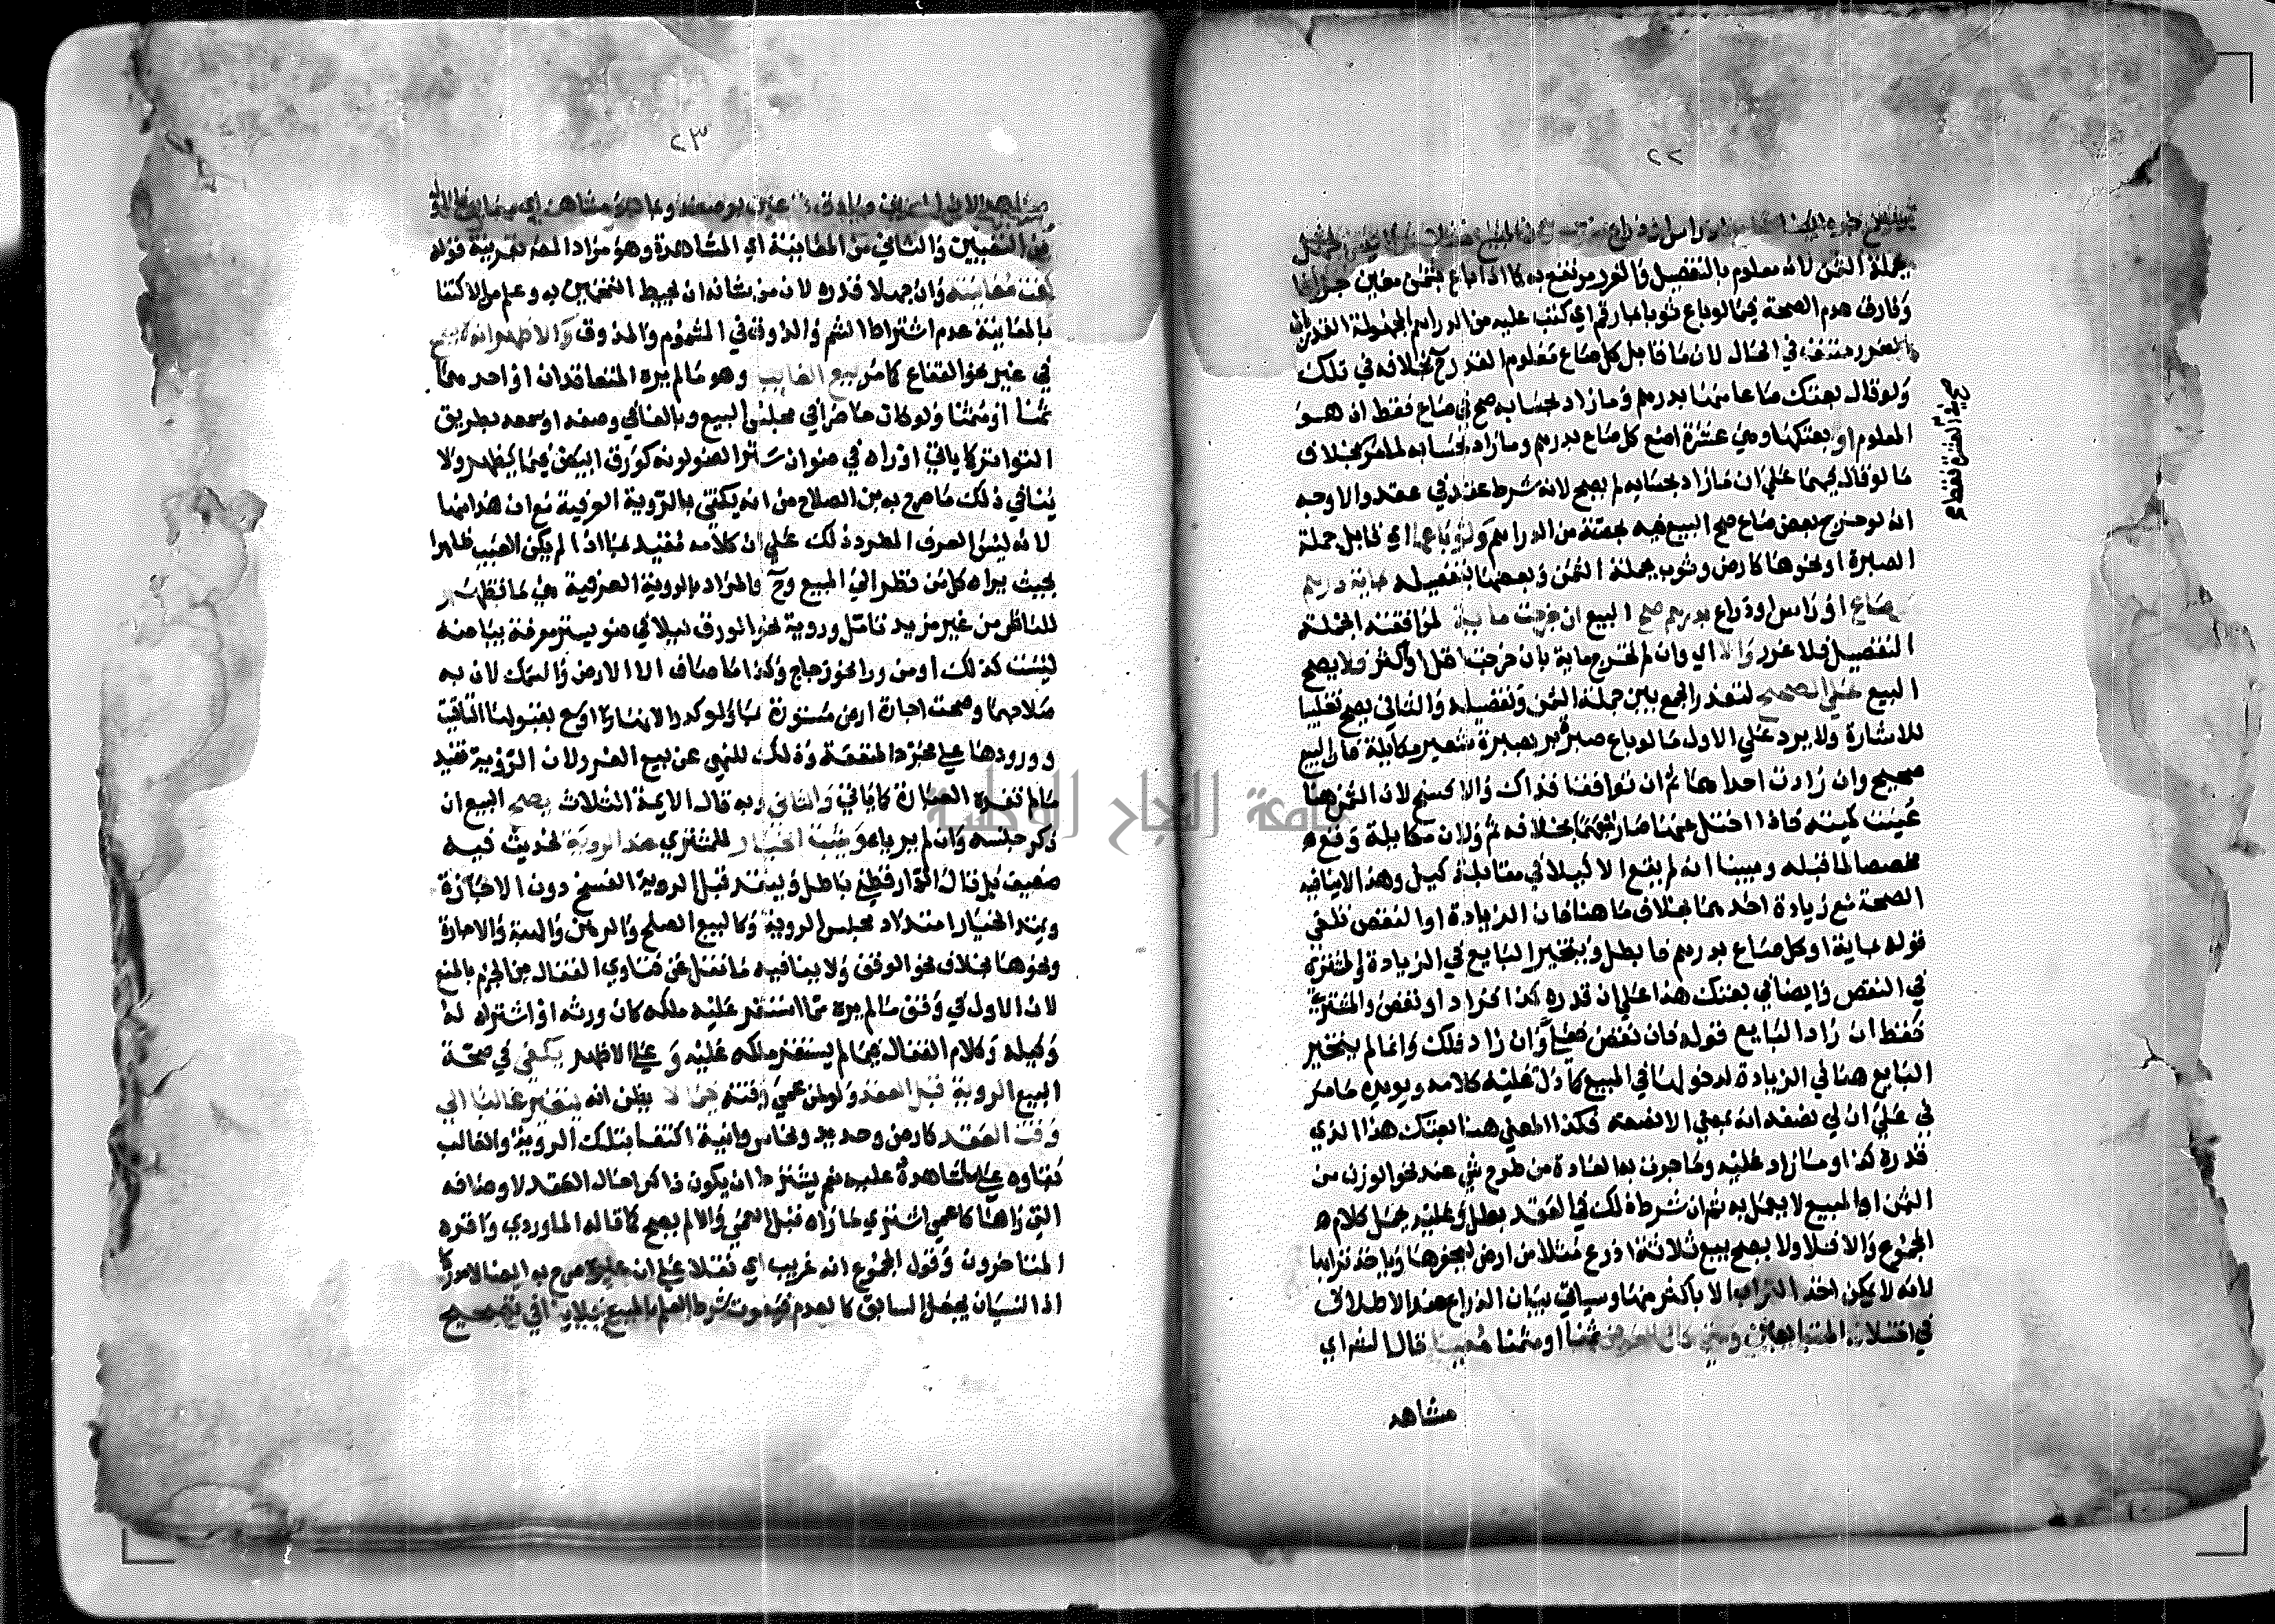 ٢٢
بجملة الثمن لانه معلوم بالتفصيل والغرر مرتفع به كما اذا باع بثمن معين جزافا
وفارق عدم الصحة فيما لو باع ثوبا بما رقم اي كتب عليه من الدراهم المجهولة القدر بان
الغرر منتف في الحال لان ما قابل كل صاع معلوم القدر ح بخلافه في تلك
ولو قال بعتك صاعا منها بدرهم وما زاد بحسابه صح في صاع فقط اذ هو
المعلوم او بعتكها وهي عشرة اصع كل صاع بدرهم وما زاد بحسابه لما مر بخلاف
صح في العشرة فقط
ما لو قال فيهما على ان ما زاد بحسابه لم يصح لانه شرط عقد في عقد والاوجه
انه لو خرج بعض صاع صح البيع فيه بحصته من الدراهم ولو باعها اي قابل جملة
الصبرة او نحوها كارض وثوب بجملة الثمن وبعضها بتفصيله بماية درهم
صاع او راس او ذراع بدرهم صح البيع ان خرجت ماية لموافقته الجملة
التفصيل فلا غرر والا اي وان لم تخرج ماية بان خرجت اقل او اكثر فلا يصح
البيع على الصحيح لتعذر الجمع بين جملة الثمن وتفصيله والثاني يصح تغليبا
للاشارة ولا يرد على الاول ما لو باع صبرة بر بصبرة شعير مكايلة فان البيع
صحيح وان زادت احداهما ثم ان توافقا فذاك والا فسخ لان الثمن هنا
عينت كميته فاذا اختل عنها صار مبهما بخلافه ثم ولان مكايلة وقع
مخصصا لما قبله ومبينا انه لم يقع الا كيلا في مقابلة كيل وهذا لا ينافيه
الصحة مع زيادة احدهما بخلاف ما هنا فان الزيادة او النقص تلغي
قوله بماية او كل صاع بدرهم فابطل ويتخير البايع في الزيادة والمشتري
في النقص وايضا في بعتك هذا على ان قدره كذا فزاد او نقص والمشتري
فقط ان زاد البايع قوله فان نقص فعلي وان زاد فلك وانما لم يتخير
البايع هنا في الزيادة لدخولها في المبيع كما دل عليه كلامه ويويده ما مر
في علي ان لي نصفه انه بمعني الا نصفه فكذا المعني هنا بعتك هذا الذي
قدره كذا وما زاد عليه وما جرت به العادة من طرح شي عند نحو الوزن من
الثمن او المبيع لا يعمل به ثم ان شرط ذلك في العقد بطل وعليه يحمل كلام
المجموع والا فلا ولا يصح بيع ثلاثة اذرع مثلا من ارض ليحفرها وياخذ ترابها
لانه لا يمكن اخذ التراب الا باكثر منها وسياتي بيان الذراع عند الاطلاق
في اختلاف المتبايعين ومتي كان العوض ثمنا او مثمنا معينا قال الشراي
مشاهد
٢٣
من التعيين والثاني من المعاينة اي المشاهدة وهو مراد المص بقرينة قوله
كفت معاينته وان جهلا قدره لان من شانه ان يحيط التخمين به وعلم من الاكتفا
بالمعاينة عدم اشتراط الشم والذوق في المشموم والمذوق والاظهر انه
في غير نحو الفقاع كما مر بيع الغايب وهو ما لم يره المتعاقدان او احدهما
ثمنا او مثمنا ولو كان حاضرا في مجلس البيع وبالغا في وصفه او سمعه بطريق
التواتر كما ياتي او راه في ضوء ان ستر الضوء لونه كورق ابيض فيما يظهر ولا
ينافي ذلك ما صرح به ابن الصلاح من انه يكتفي بالروية العرفية مع ان هذا منها
لانه ليس العرف المطرد ذلك علي ان كلامه مقيد بما اذا لم يكن العيب ظاهرا
بحيث يراه كل من نظر الي المبيع وح فالمراد بالروية العرفية هي ما تظهر
للناظر من غير مزيد تامل وروية نحو الورق ليلا في ضوء يستر معرفة بياضه
ليست كذلك او من ورا نحو زجاج وكذا ما صاف الا الارض والسمك لان به
صلاحهما وصحت اجارة ارض مستورة بما ولو كدرا لانها اوسع بقبولها التاقيت
وورودها علي مجرد المنفعة وذلك للنهي عن بيع الغرر ولان الروية تفيد
ما لم تفده العبارة كما ياتي والثاني وبه قال الايمة الثلاث يصح البيع ان
ذكر جنسه وان لم يرياه ويثبت الخيار للمشتري عند الروية لحديث فيه
ضعيف بل قال الدارقطني باطل وينفذ قبل الروية الفسخ دون الاجازة
ويمتد الخيار امتداد مجلس الروية وكالبيع الصلح والرهن والهبة والاجارة
ونحوها بخلاف نحو الوقف ولا ينافيه ما نقل عن فتاوي القفال من الجزم بالمنع
لان الاول في وقف ما لم يره مما استقر عليه ملكه كان ورثه او اشتراه له
وكيله وكلام القفال فيما لم يستقر ملكه عليه وعلي الاظهر يكفي في صحة
البيع الروية قبل العقد ولو لمن عمي وقته فيما لا يظن انه يتغير غالبا الي
وقت العقد كارض وحديد ونحاس وانية اكتفا بتلك الروية والغالب
بقاوه علي ما شاهده عليه نعم يشترط ان يكون ذاكرا حال العقد لاوصافه
التي راها كاعمي اشتري ما راه قبل العمي والا لم يصح كما قاله الماوردي واقره
المتاخرون وقول المجموع انه غريب اي نقلا علي ان غيره صرح به ايضا لا مدركا
اذ النسيان يجعل السابق كالعدم فيفوت شرط العلم بالمبيع
جامعة النجاح الوطنية